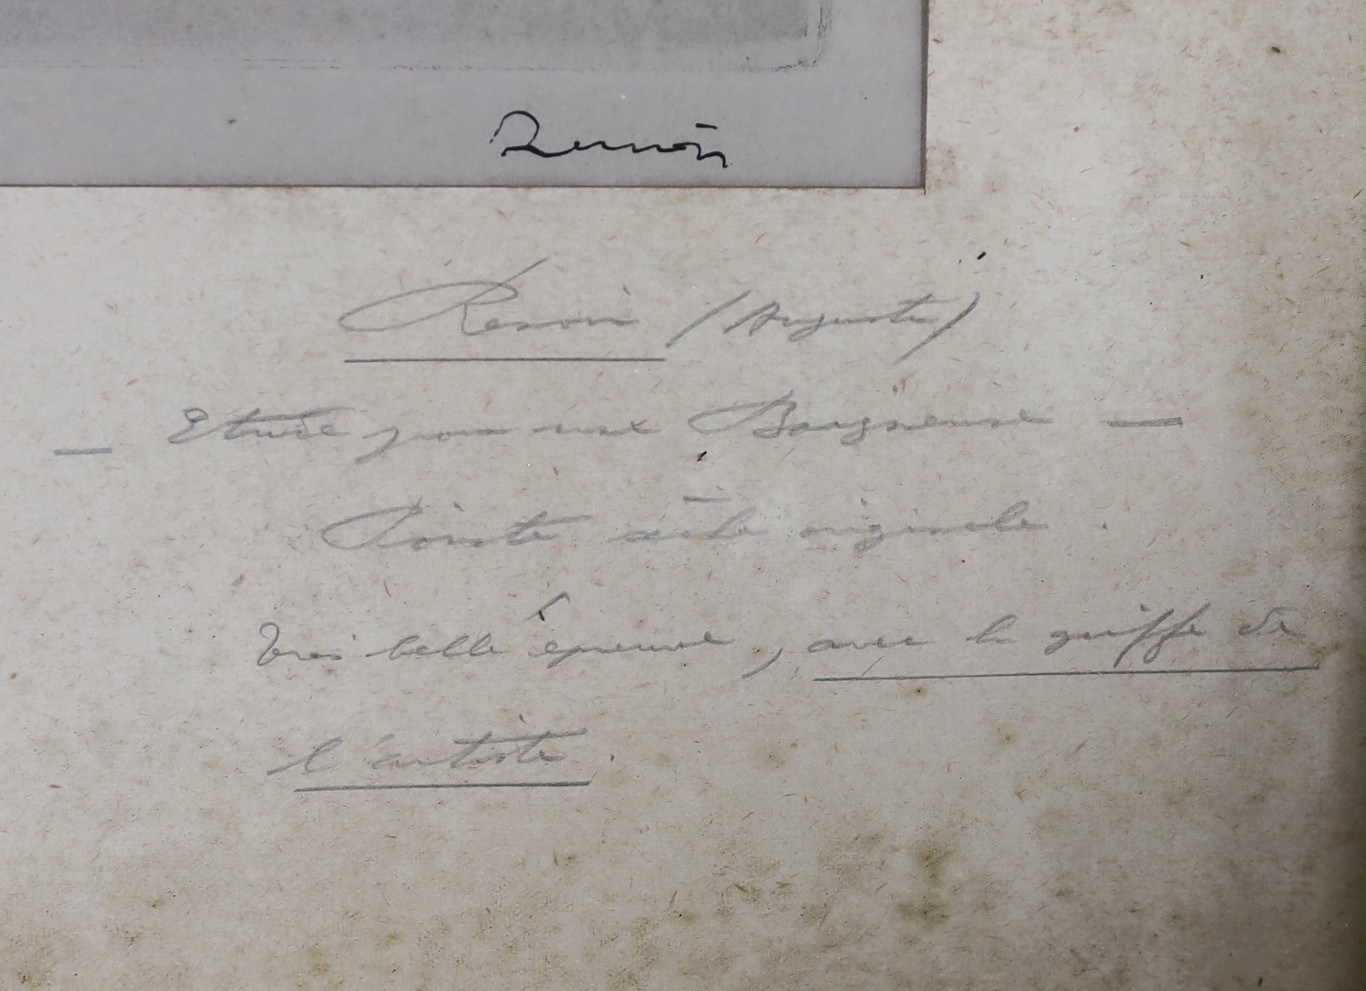 Renoir
Renoir (Auguste)
— Etude pour une Baigneuse —
Pointe sèche originale.
Très belle épreuve, avec la griffe de
l'artiste.